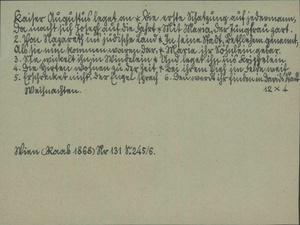 Kaiser Augustus leget an & Die erste Schatzung auf jedermann,
Da macht sich Josef auf die Fahrt & Mit Maria, der Jungfrau zart.
2. Von Nazareth ins jüdische Land & In seine Stadt, Bethlehem genannt,
Als sie nun kommen waren dar, & Maria ihr Söhnlein gebar.
3. Sie wickelt ihn in Windelein & Und legt ihn ins Kripplein
4. Die Hirten wohnen zu der Zeit & Bei ihrem Vieh im Felde weit
5. Erschrecket nicht, der Engel sprach 6. Den werdt ihr finden in Davids Stadt
Weihnachten. 12 x 4
Wien (Raab 1868) Nr 131 S. 245/6.